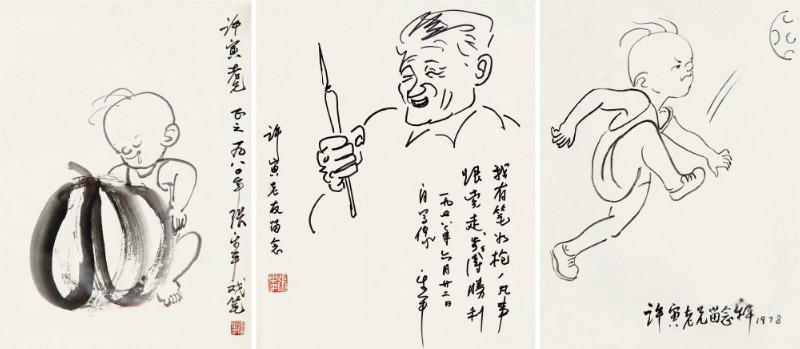 许寅老兄 正之 一九八〇年 张乐平戏笔
许寅老友留念
我有笔如枪,凡事
跟党走,步々得勝利
一九七八年六月廿二日
自写像 乐平
许寅老兄留念 乐平 1978